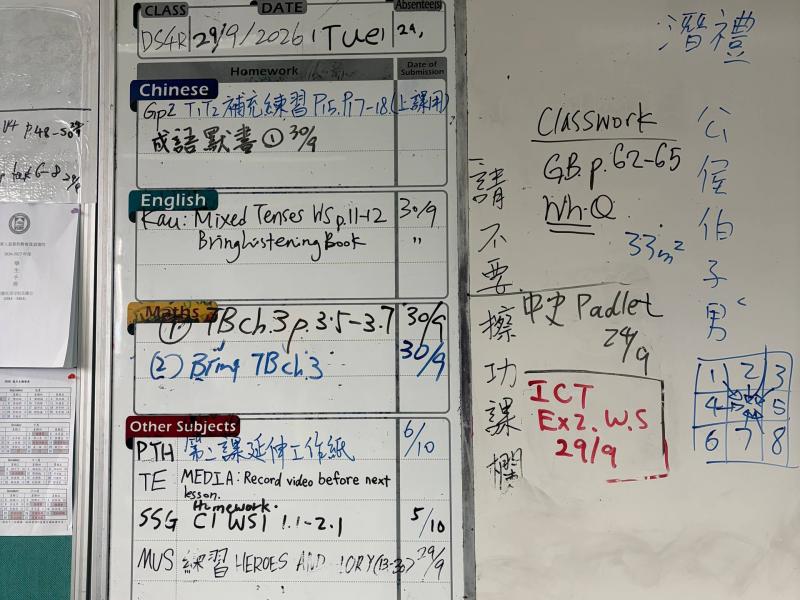 CLASS DATE Absentee(s)
DS4R 29/9/2026 (Tue)
Homework Date of Submission
Chinese
Gp2 T1,T2 補充練習 P.15, P.17-18 (上課用)
成語默書① 30/9
English
Kau: Mixed Tenses WS p.11-12 30/9
Bring Listening Book "
Maths
(1) 7B ch.3 p.3.5-3.7 30/9
(2) Bring 7B ch.3 30/9
Other Subjects
PTH 第二課延伸工作紙 6/10
TE MEDIA: Record video before next lesson.
Homework.
SSG C1 WS1 1.1-2.1 5/10
MUS 練習 HEROES AND 29/9
請不要擦功課欄
Classwork
GB.p.62-65
Wh.Q
33m²
中史 Padlet
29/9
ICT
Ex2. W.S
29/9
潛禮
公侯伯子男
1 2 3
4 5
6 7 8
p.48-50
6-8